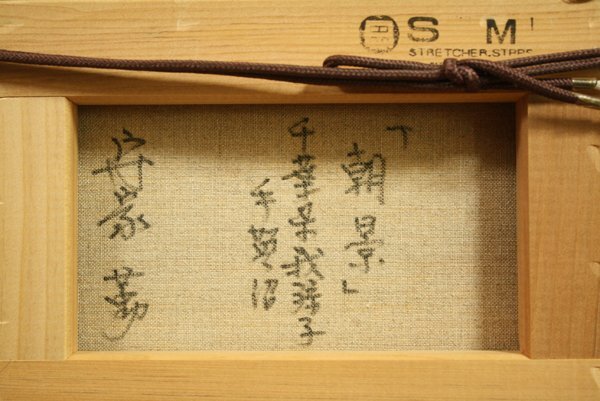 S M
STRETCHER.STRPS
「朝景」
千葉県我孫子
手賀沼